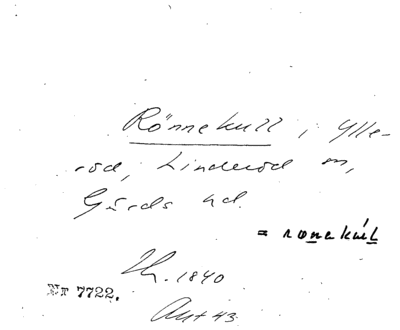 Rönnekull i Ylle-
röd, Linderöd sn,
Gärds hd.
= rωnekúl
Th. 1840
Nr 7722.
Ant 43